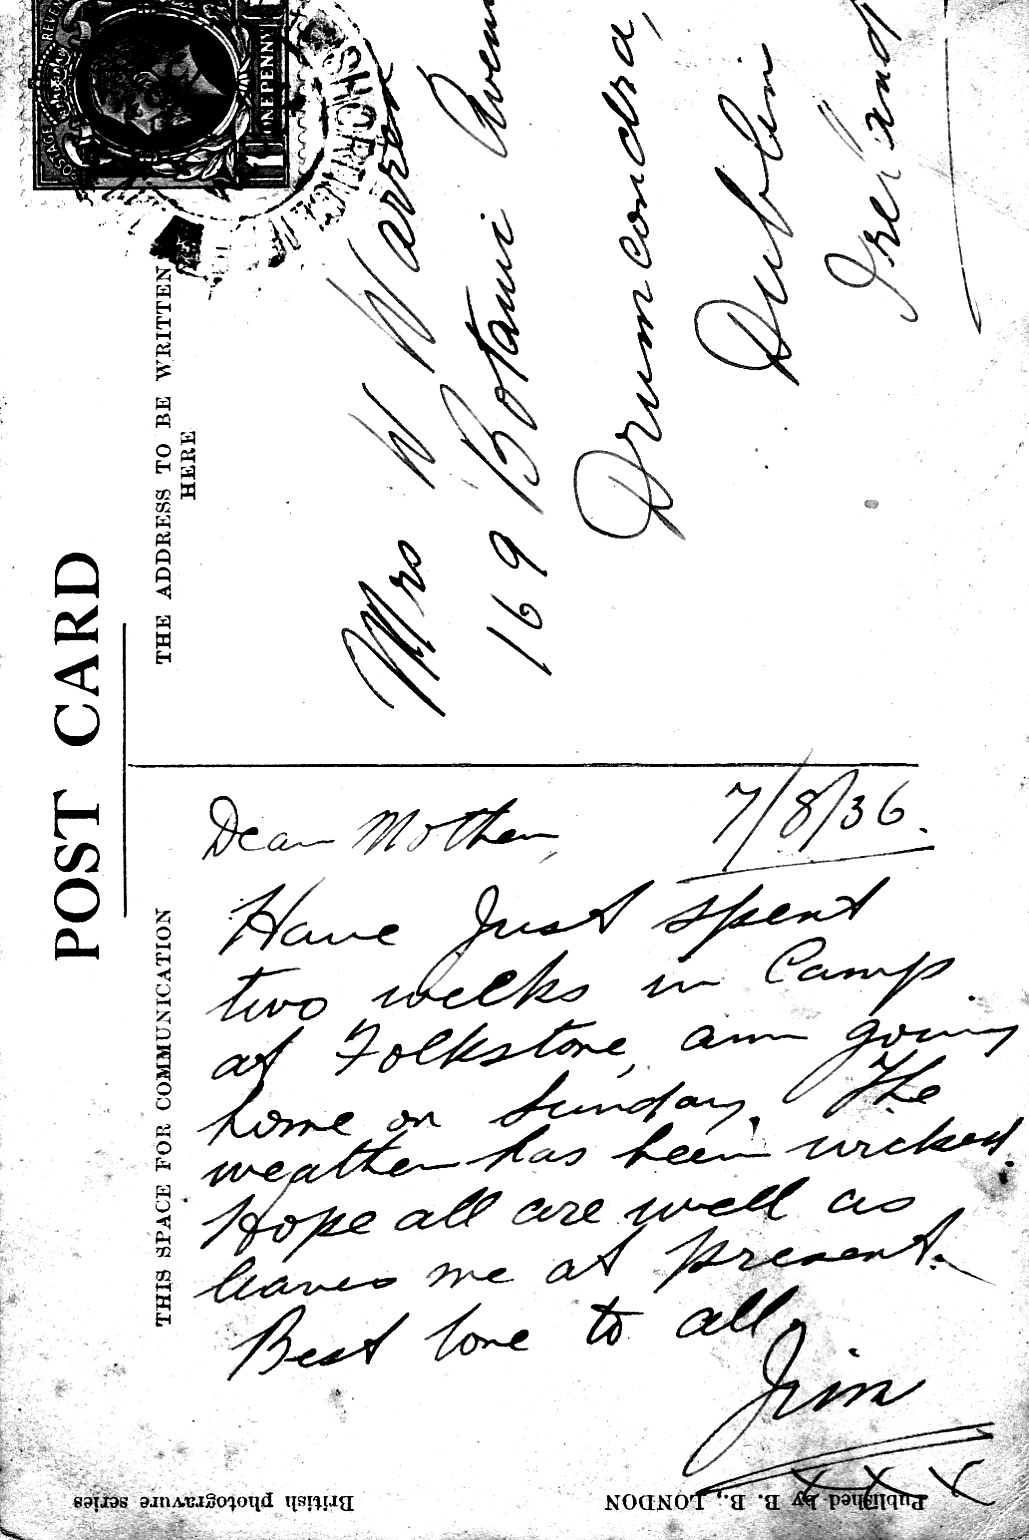 POST CARD
THE ADDRESS TO BE WRITTEN
HERE
THIS SPACE FOR COMMUNICATION
POSTAGE REVENUE
ONE PENNY
SHORNCLIFFE
Mrs W Warren
169 Botanic Avenu
Drumcondra,
Dublin
Ireland
7/8/36.
Dear Mother,
Have Just spent
two weeks in Camp
at Folkstone, am going
home on Sunday. The
weather has been wicked.
Hope all are well as
leaves me at present.
Best love to all,
Jim
X X X
British photogravure series
Published by B. B., LONDON